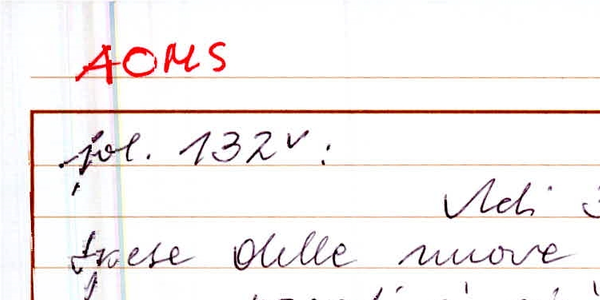 AOMS
fol. 132v:
Adi 3
spese delle nuove